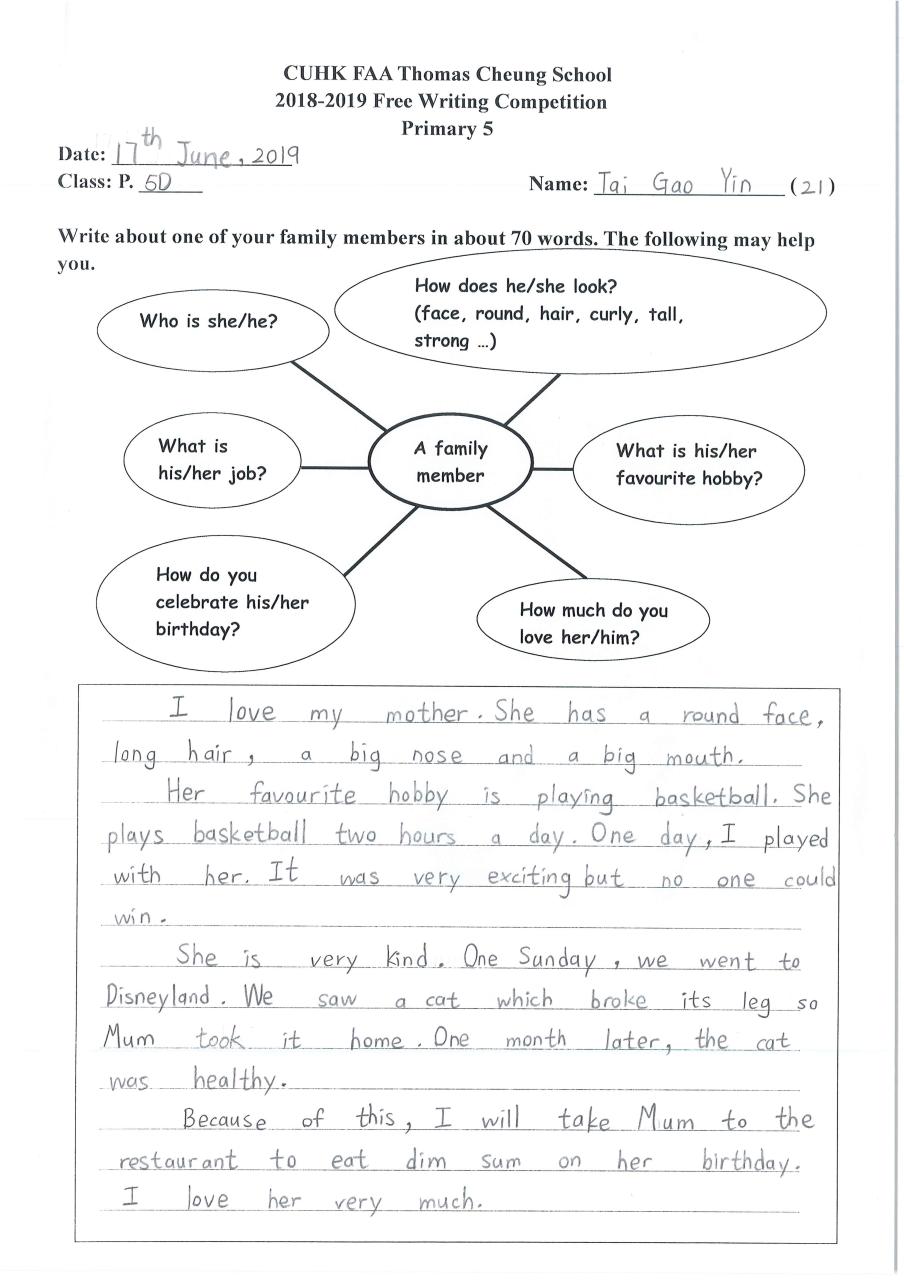 CUHK FAA Thomas Cheung School
2018-2019 Free Writing Competition
Primary 5
Date: 17th June, 2019
Class: P. 5D
Name: Tai Gao Yin (21)
Write about one of your family members in about 70 words. The following may help
you.
Who is she/he?
How does he/she look?
(face, round, hair, curly, tall,
strong ...)
What is
his/her job?
A family
member
What is his/her
favourite hobby?
How do you
celebrate his/her
birthday?
How much do you
love her/him?
I love my mother. She has a round face,
long hair, a big nose and a big mouth.
Her favourite hobby is playing basketball. She
plays basketball two hours a day. One day, I played
with her. It was very exciting but no one could
win.
She is very kind. One Sunday, we went to
Disneyland. We saw a cat which broke its leg so
Mum took it home. One month later, the cat
was healthy.
Because of this, I will take Mum to the
restaurant to eat dim sum on her birthday.
I love her very much.